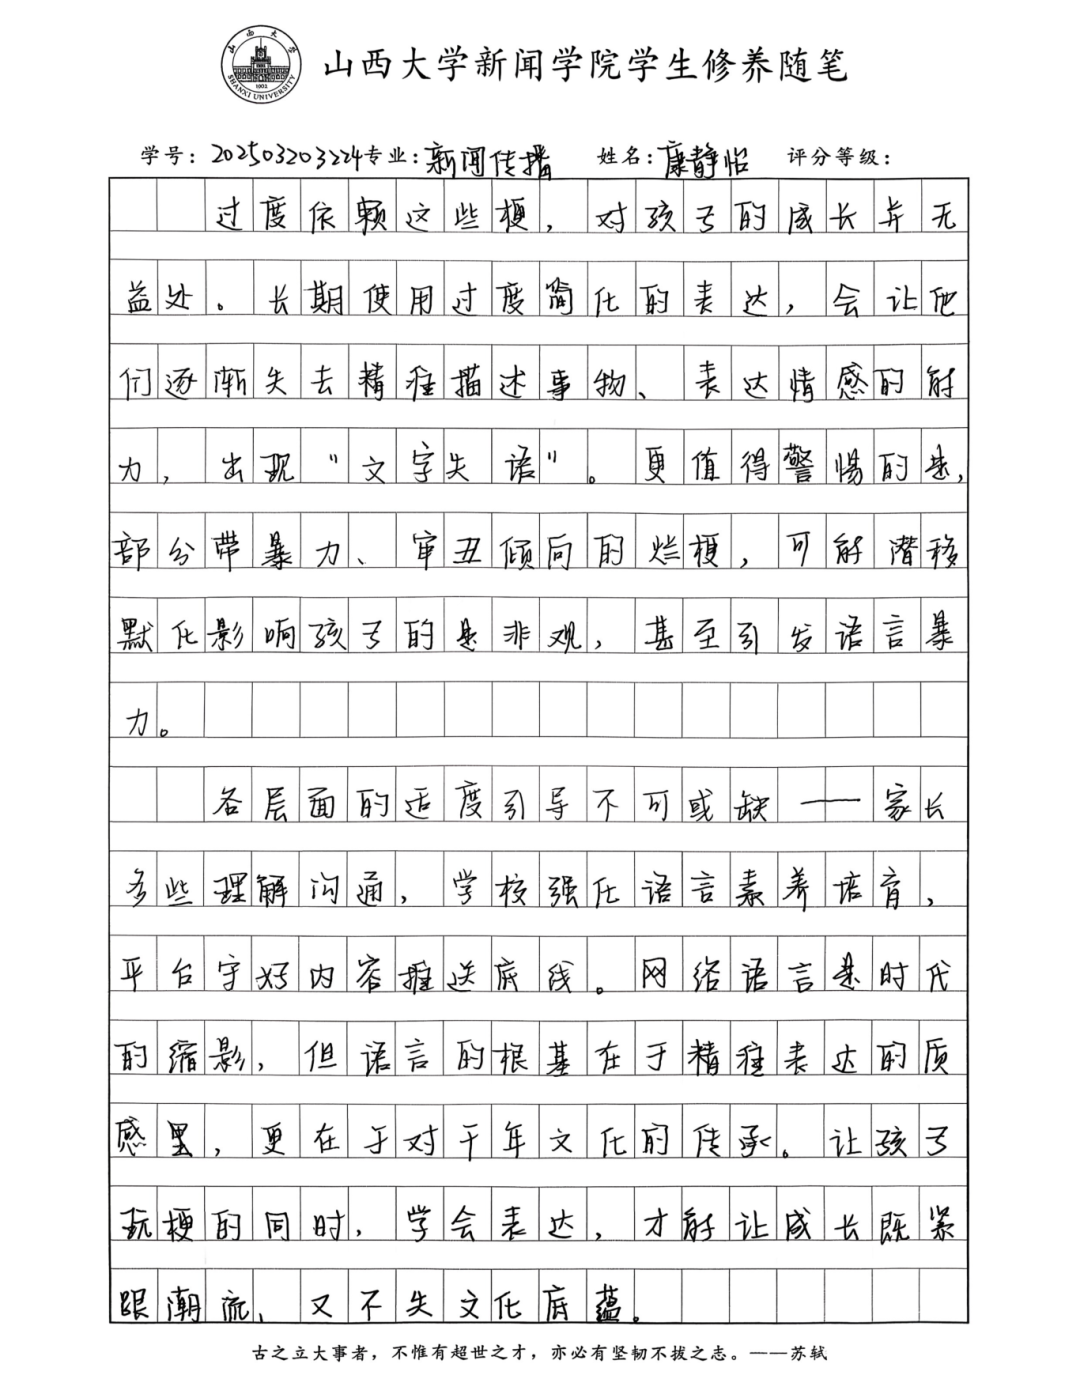 山西大学
SHANXI UNIVERSITY
1902
山西大学新闻学院学生修养随笔
学号：202503203224专业：新闻传播 姓名：康静怡 评分等级：
过度依赖这些梗，对孩子的成长并无
益处。长期使用过度简化的表达，会让他
们逐渐失去精准描述事物、表达情感的能
力，出现“文字失语”。更值得警惕的是，
部分带暴力、审丑倾向的烂梗，可能潜移
默化影响孩子的是非观，甚至引发语言暴
力。
各层面的适度引导不可或缺——家长
多些理解沟通，学校强化语言素养培育，
平台守好内容推送底线。网络语言是时代
的缩影，但语言的根基在于精准表达的质
感里，更在于对千年文化的传承。让孩子
玩梗的同时，学会表达，才能让成长既紧
跟潮流，又不失文化底蕴。
古之立大事者，不惟有超世之才，亦必有坚韧不拔之志。——苏轼